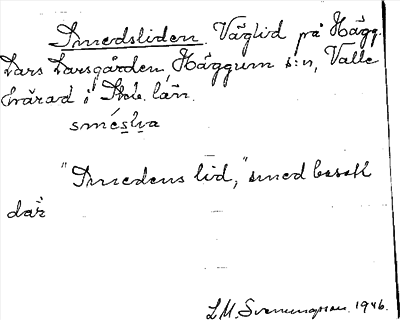 Smedsliden. Väglid på Hägg.
Lars Larsgården Häggum s:n, Valle
härad i Skob. län.
smésḷıva
"Smedens lid," smed bosatt
där
L.M. Svenungsson. 1946.